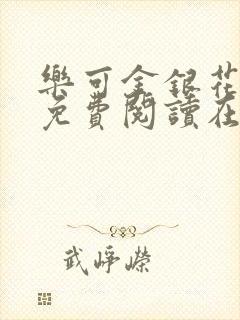 樂可金銀花
免費閱讀在
武崢嶸